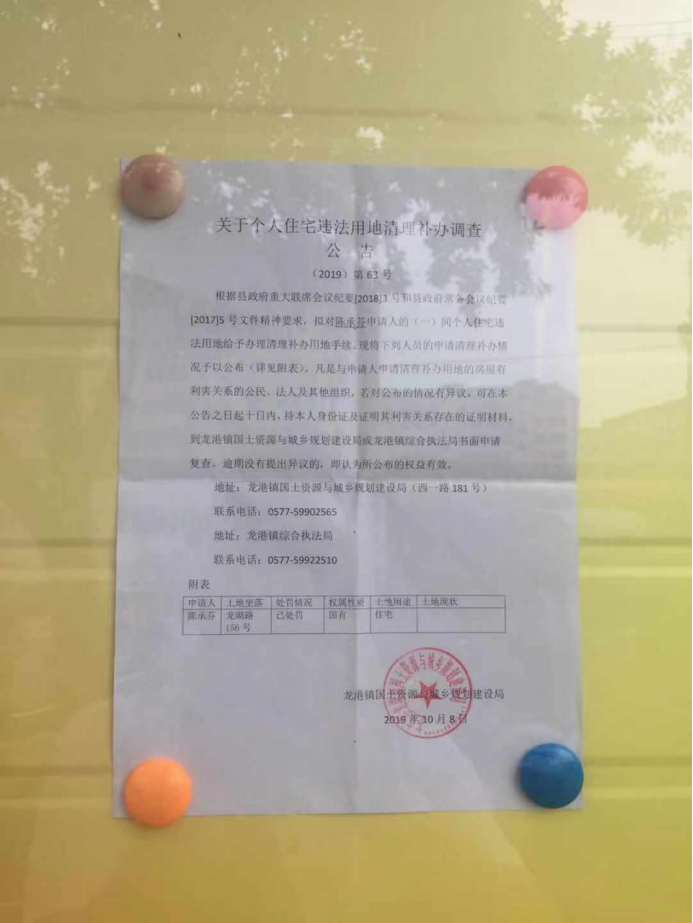 关于个人住宅违法用地清理补办调查
公 告
（2019）第 63 号
根据县政府重大联席会议纪要[2018]3 号和县政府常务会议纪要
[2017]5 号文件精神要求，拟对陈承芬申请人的（一）间个人住宅违
法用地给予办理清理补办用地手续。现将下列人员的申请清理补办情
况予以公布（详见附表）。凡是与申请人申请清理补办用地的房屋有
利害关系的公民、法人及其他组织，若对公布的情况有异议，可在本
公告之日起十日内，持本人身份证及证明其利害关系存在的证明材料，
到龙港镇国土资源与城乡规划建设局或龙港镇综合执法局书面申请
复查。逾期没有提出异议的，即认为所公布的权益有效。
地址：龙港镇国土资源与城乡规划建设局（西一路 181 号）
联系电话：0577-59902565
地址：龙港镇综合执法局
联系电话：0577-59922510
附表
申请人 土地坐落 处罚情况 权属性质 土地用途 土地现状
陈承芬 龙湖路 已处罚 国有 住宅
156 号
龙港镇国土资源与城乡规划建设局
2019 年 10 月 8 日